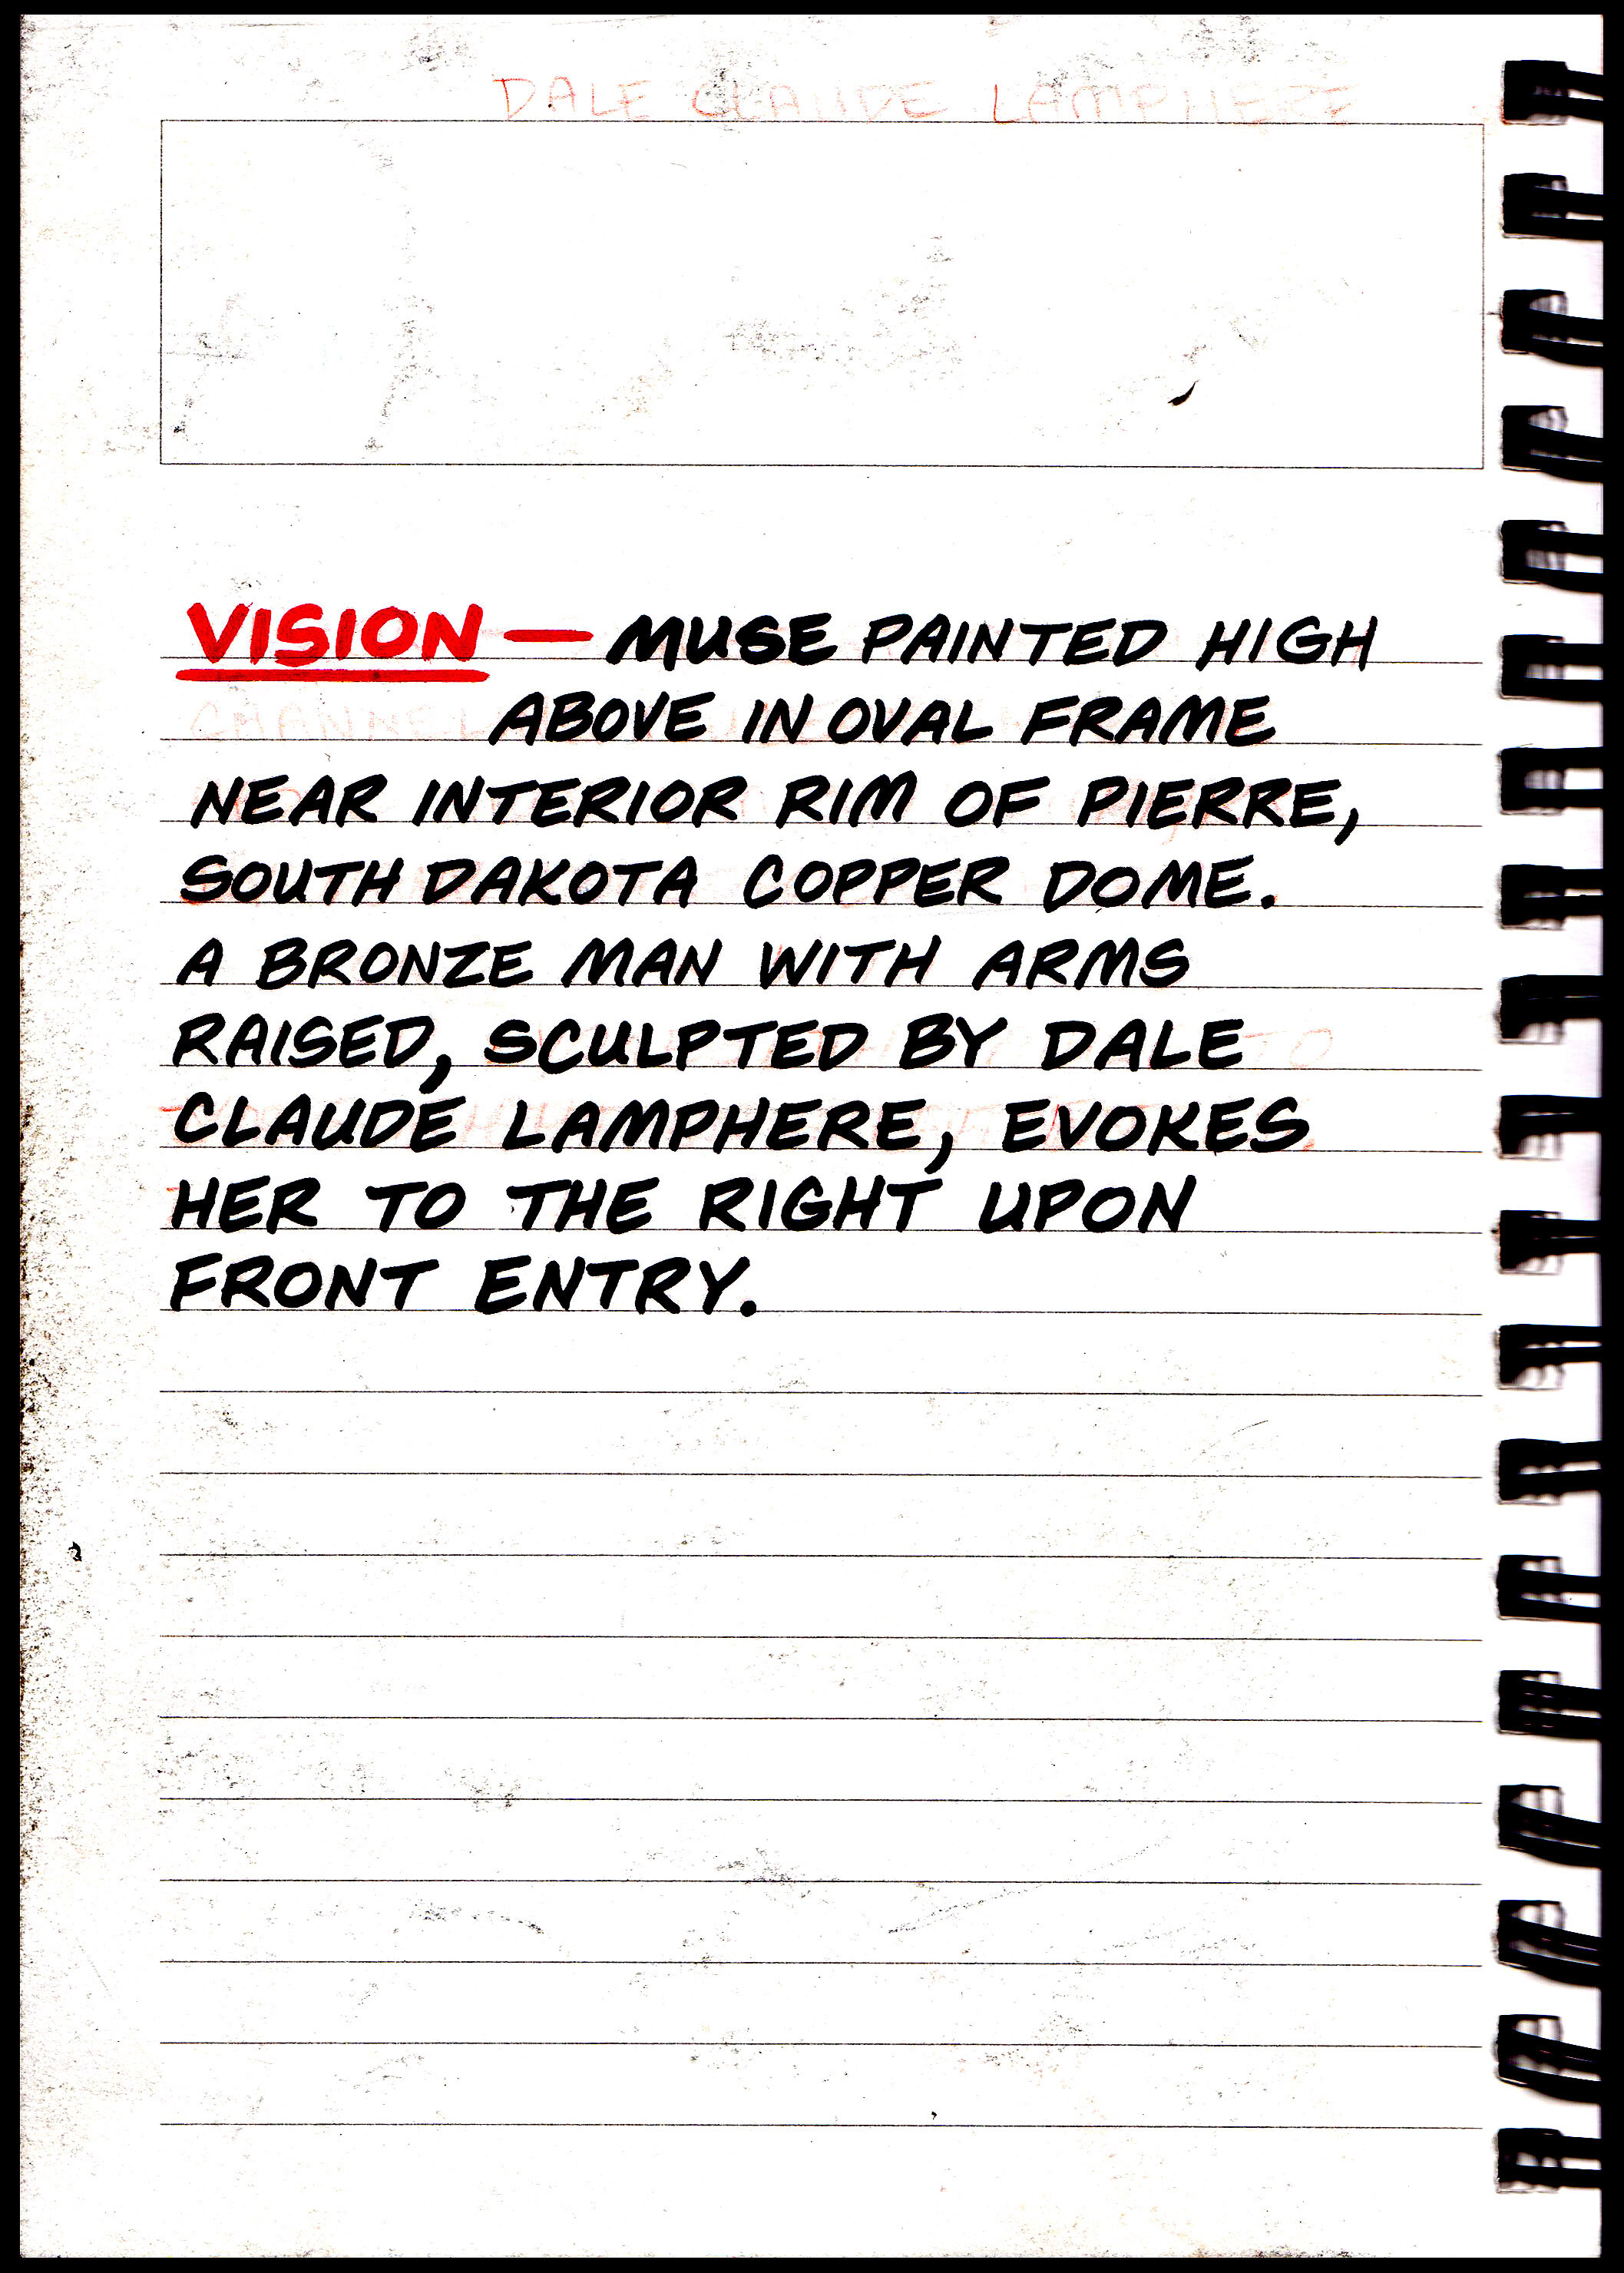 DALE CLAUDE LAMPHERE
VISION — MUSE PAINTED HIGH
ABOVE IN OVAL FRAME
NEAR INTERIOR RIM OF PIERRE,
SOUTH DAKOTA COPPER DOME.
A BRONZE MAN WITH ARMS
RAISED, SCULPTED BY DALE
CLAUDE LAMPHERE, EVOKES
HER TO THE RIGHT UPON
FRONT ENTRY.